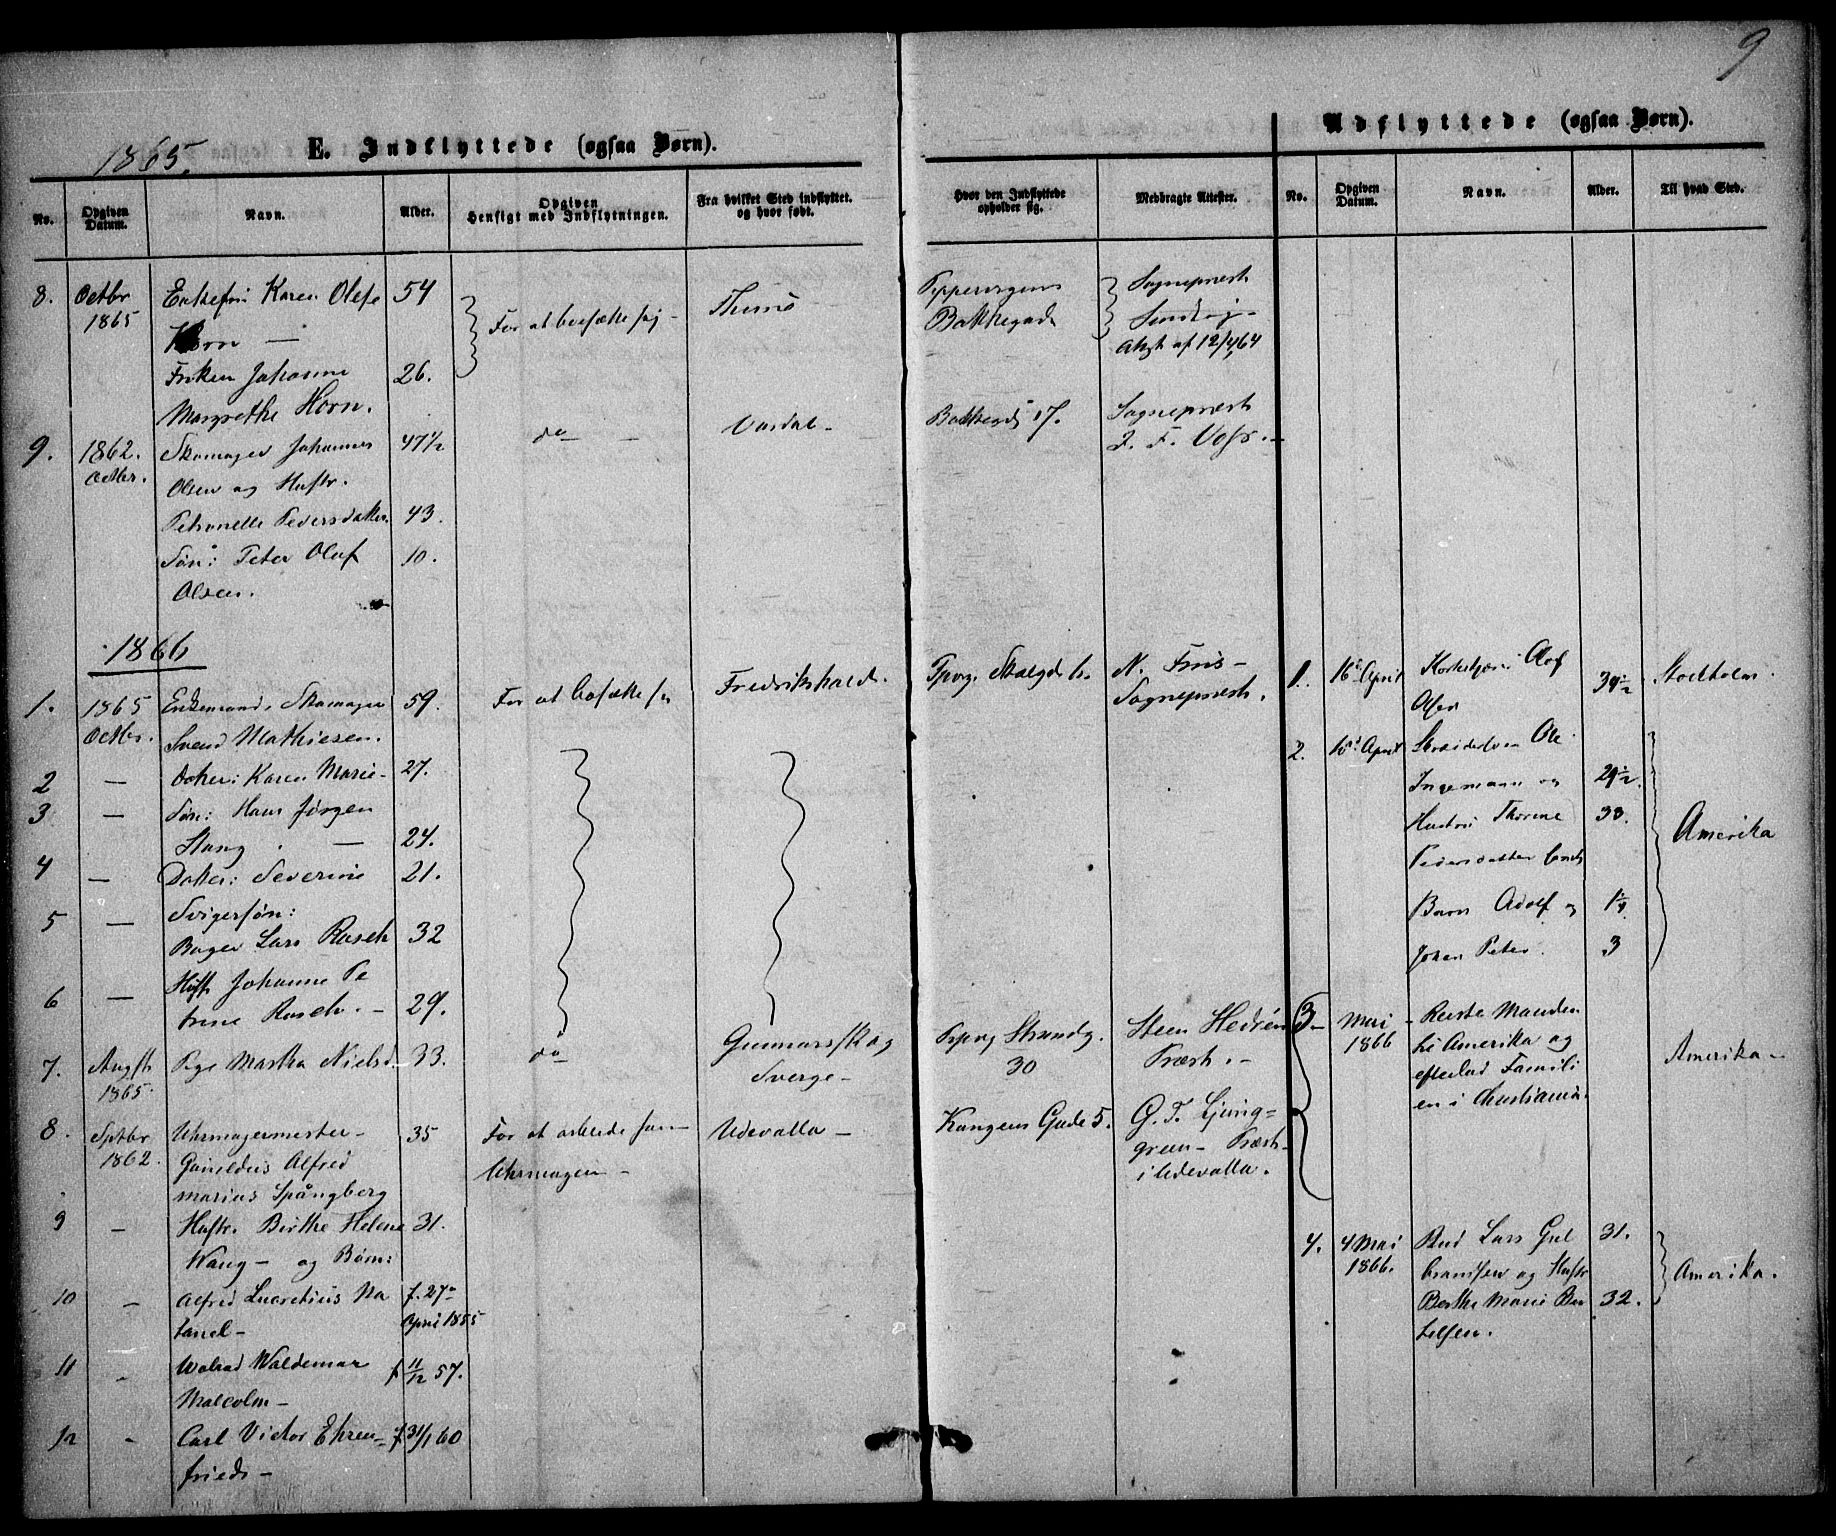 9
1865.
E. Indflyttede (ogsaa Børn).
Udflyttede (ogsaa Børn).
No.
Opgiven Datum.
Navn.
Alder.
Opgiven Hensigt med Indflytningen.
Fra hvilket Sted indflyttet. og hvor født.
Hvor den Indflyttede opholder sig.
Medbragte Attester.
No.
Opgiven Datum.
Navn.
Alder.
Til hvad Sted.
8. Octbr 1865
Enkefru Karen Olefe 54
Horn —
Frøken Johanne 26.
Margrethe Horn.
For at bosætte sig —
Bakkegade
Sogneprest
Attest af 12/4 64
9. 1862. Octbr.
Skomager Johannes 47 1/2
Olsen og Hustr.
Petronelle Pedersdatter 43.
Søn: Peter Olaf 10.
Olsen.
do —
Vardal —
17. Sogneprest
J. F. Voss. —
1866
1. 1865 Octbr.
Enkemand Skomager 59.
Svend Mathiesen.
For at bosætte sig
Fredrikshald.
N. Friis —
Sogneprest.
2 — Datter: Karen Marie — 27.
3 — Søn: Hans Jørgen
Stang — 24.
4 — Datter: Severine 21.
5 — Svigersøn:
Bager Lars Rasch 32
6 — Hustr Johanne Pe
trine Rasch. — 29.
7. Augst 1865.
Pige Martha Nielsd. 33.
do
Gunnarsskog
Sverge —
Strandg. 30
Steen Hedrén
Præst. —
8. Septbr 1862.
Uhrmagermester — 35
Alfred
Marius Spångberg
For at arbeide som —
Uhrmager —
Udevalla —
Kongens Gade 5.
G. T. Ljung=
green — Præst
i Udevalla.
9 — Hustr. Birthe Helene 31.
Wang — og Børn:
10 — Alfred Lucretius Na f. 27de April 1855
tanel —
11 — Waldemar f 11/12 57.
Malcolm —
12 — Carl Victor Ehren= f 31/1 60
frieds —
1. 16 April
Olof
Olsen 39 1/2
Stockholm.
2. 16 April
Ole
Ingemann og 29 1/2.
Hustru Thorine 33.
Pedersdatter samt
Barn Adolf og 1 1/4
Johan Peter. 3
Amerika
3. — Mai 1866
— Reiste Manden
til Amerika og
efterlod Famili
en i Christiania.
Amerika —
4. 4 Mai 1866.
Bud Lars Gul 31.
brandsen og Hustr
Berthe Marie Ber 32.
telsen.
Amerika.